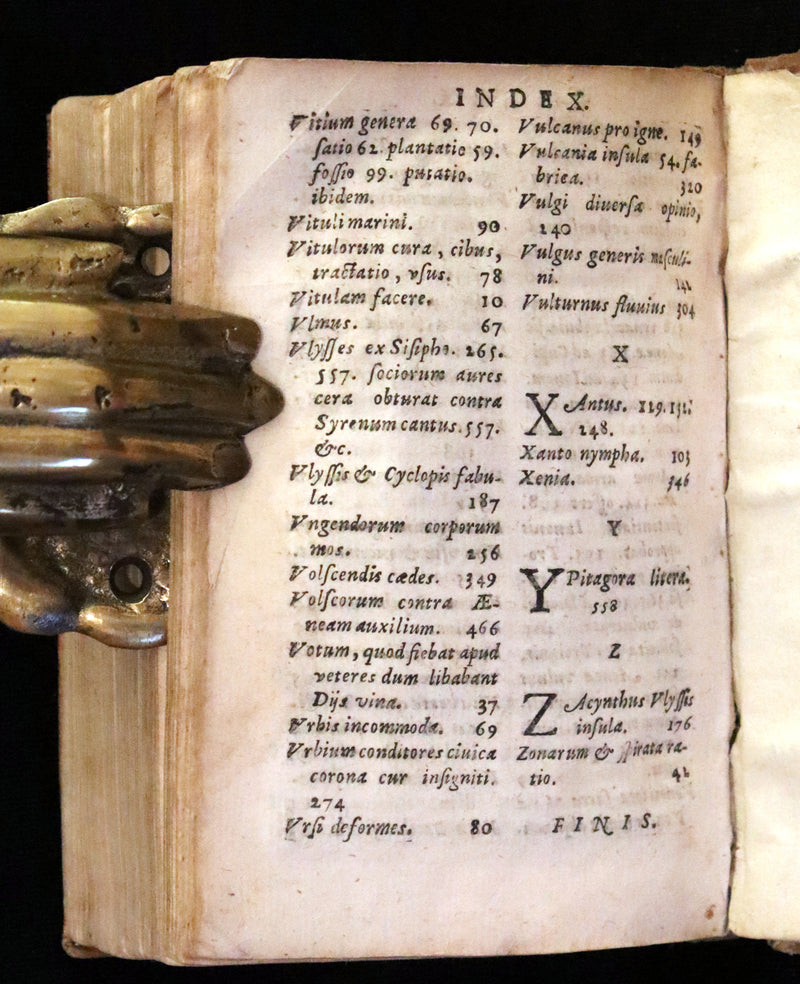 INDEX.
Vitium genera 69. 70.
ſatio 62. plantatio 59.
foſſio 99. putatio.
ibidem.
Vituli marini. 90
Vitulorum cura, cibus,
tractatio, vſus. 78
Vitulam facere. 10
Vlmus. 67
Vlyſſes ex Siſipho. 265.
557. ſociorum aures
cera obturat contra
Syrenum cantus. 557.
&c.
Vlyſſis & Cyclopis fabu-
la. 187
Vngendorum corporum
mos. 256
Volſcendis cædes. 349
Volſcorum contra Æ-
neam auxilium. 466
Votum, quod fiebat apud
veteres dum libabant
Dijs vina. 37
Vrbis incommoda. 69
Vrbium conditores ciuica
corona cur inſigniti.
274
Vrſi deformes. 80
Vulcanus pro igne. 149
Vulcania inſula 54. fa-
brica. 320
Vulgi diuerſa opinio,
140
Vulgus generis maſculi-
ni.
Vulturnus fluuius 304
X
XAntus. 119. 131.
248.
Xanto nympha. 103
Xenia. 346
Y
YPitagora litera.
558
Z
ZAcynthus Vlyſſis
inſula. 176
Zonarum & ſpirata ra-
tio.
FINIS.